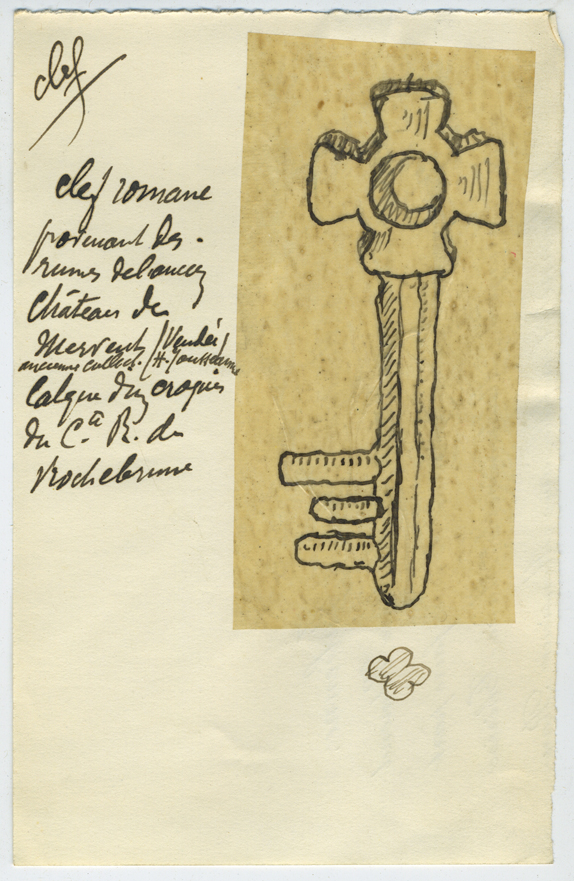 clef
clef romane
provenant des
ruines de l'ancien
Château de
Mervent (Vendée)
ancienne collect. (H.
Calque d'un croquis
du Cte R. de
Rochebrune